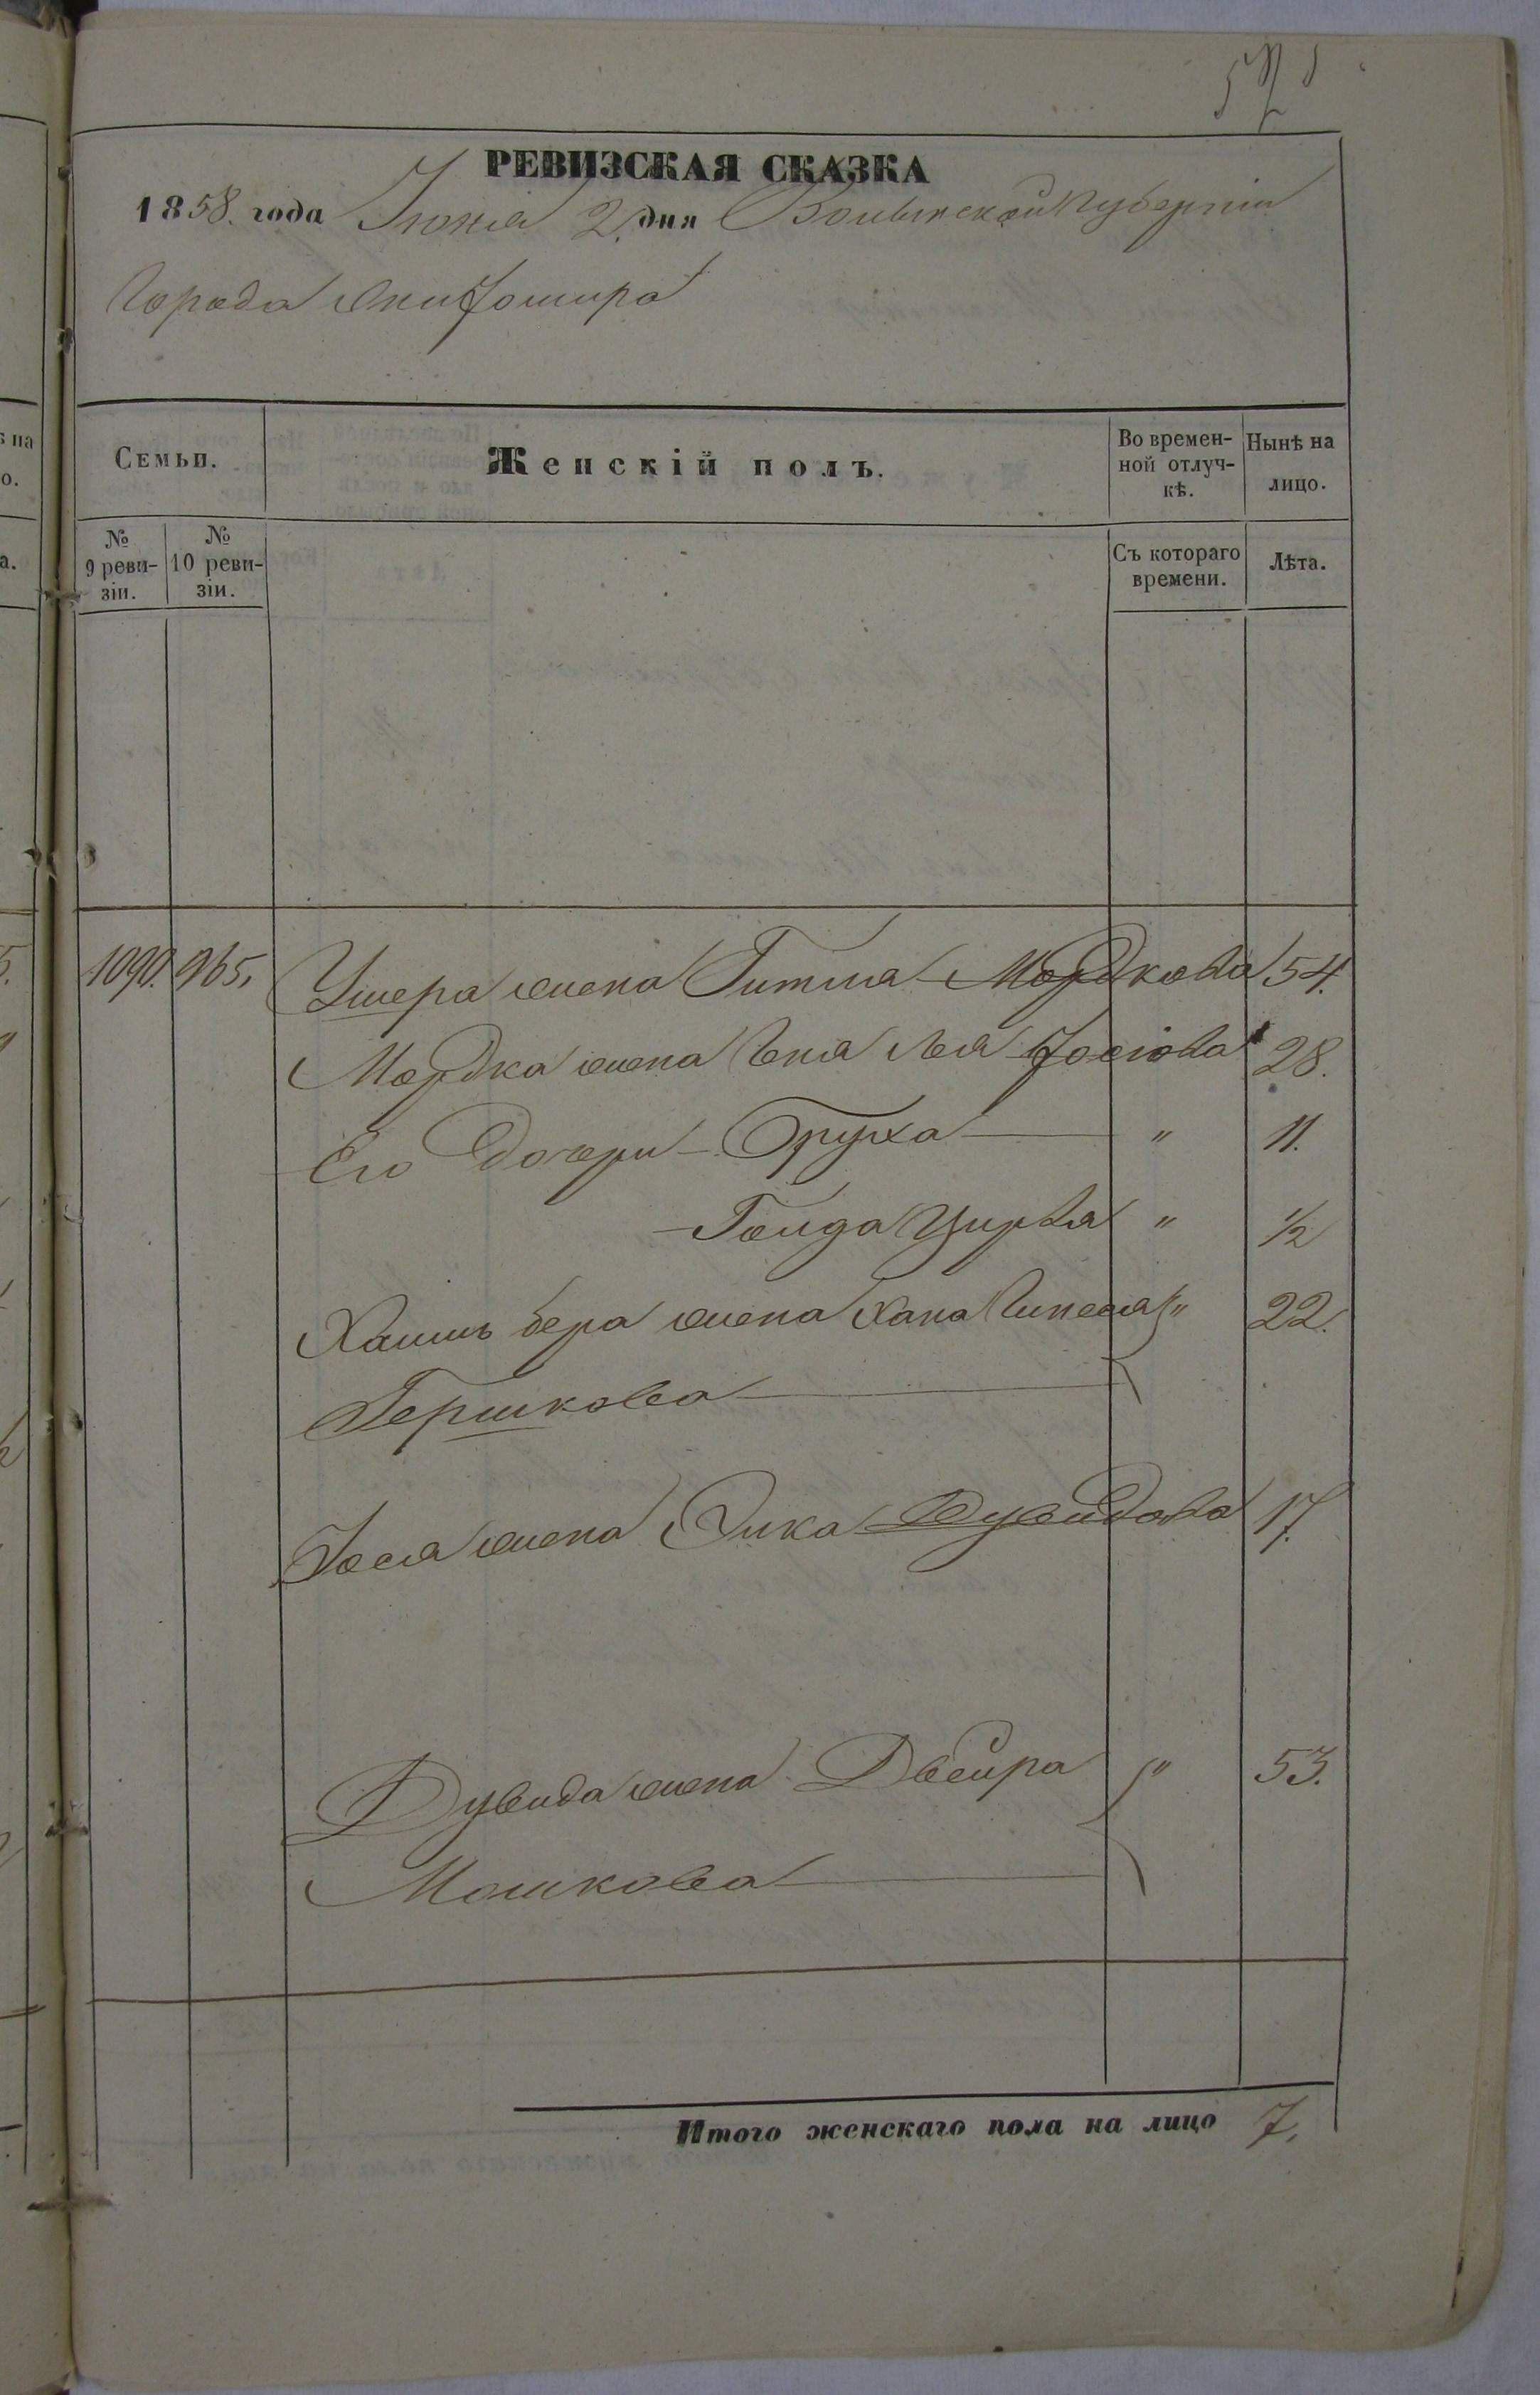 РЕВИЗСКАЯ СКАЗКА
1858. года Іюня 2. дня Волынской Губерніи
Города Житоміра
Семьи.
Женскій полъ.
Во времен-
ной отлуч-
кѣ.
Нынѣ на
лицо.
№
9 реви-
зіи.
№
10 реви-
зіи.
Съ котораго
времени.
Лѣта.
1090. 965. Ушера жена Гитля Мордкова 54.
Мордка жена Ена Лея Іосіова 28.
Его дочери Бруха " 11.
Голда Цирля " ½
Хаимъ бера жена Хана " 22.
Гершкова
Іося жена Эйка Дувидова 17.
Дувида жена Двейра " 53.
Мошкова
Итого женскаго пола на лицо 7.